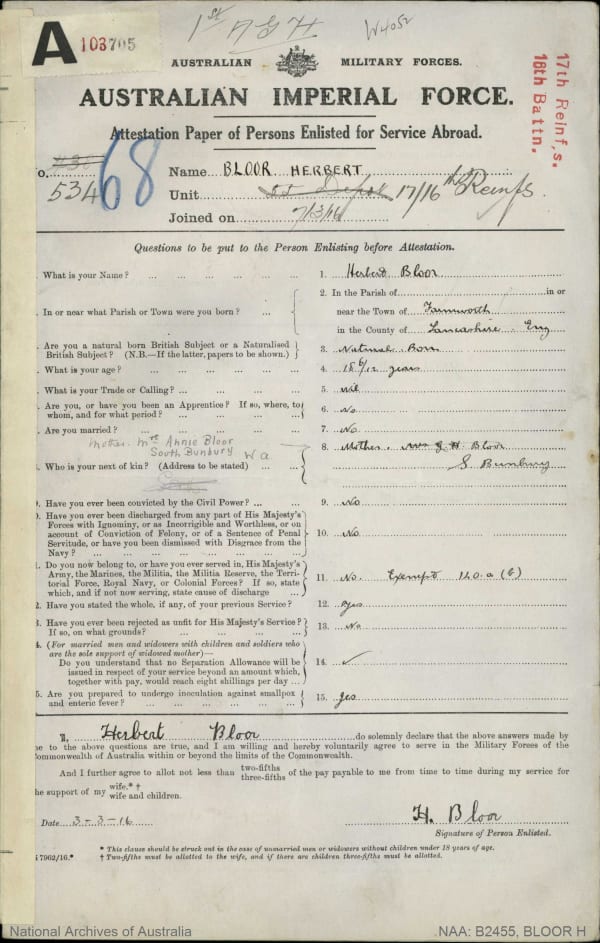 1st A G H W4052
A 103705
AUSTRALIAN MILITARY FORCES.
AUSTRALIAN IMPERIAL FORCE.
17th Reinf,s.
16th Battn.
Attestation Paper of Persons Enlisted for Service Abroad.
o. 5340 68
Name BLOOR HERBERT
Unit 55 Depot 17/16th Reinfs.
Joined on 7/3/16
Questions to be put to the Person Enlisting before Attestation.
. What is your Name? ... ... ... ... 1. Herbert Bloor
2. In the Parish of in or
. In or near what Parish or Town were you born? ... near the Town of Farnworth
in the County of Lancashire Eng
. Are you a natural born British Subject or a Naturalised
British Subject? (N.B.—If the latter, papers to be shown.) 3. Natural Born
. What is your age? ... ... ... ... 4. 18 6/12 years
. What is your Trade or Calling? ... ... ... ... 5. Nil
. Are you, or have you been an Apprentice? If so, where, to
whom, and for what period? ... ... ... ... 6. No
. Are you married? ... ... ... ... 7. No
Mother. Mrs Annie Bloor
South Bunbury W a
8. Mother. Mrs H. Bloor
. Who is your next of kin? (Address to be stated) ... ... S Bunbury
. Have you ever been convicted by the Civil Power? ... ... 9. No
0. Have you ever been discharged from any part of His Majesty's
Forces with Ignominy, or as Incorrigible and Worthless, or on
account of Conviction of Felony, or of a Sentence of Penal
Servitude, or have you been dismissed with Disgrace from the
Navy? ... ... ... ... ... 10. No
1. Do you now belong to, or have you ever served in, His Majesty's
Army, the Marines, the Militia, the Militia Reserve, the Terri-
torial Force, Royal Navy, or Colonial Forces? If so, state
which, and if not now serving, state cause of discharge ... 11. No. Exempt 140.a (6)
2. Have you stated the whole, if any, of your previous Service? 12. yes
3. Have you ever been rejected as unfit for His Majesty's Service?
If so, on what grounds? ... ... ... ... 13. No
4. (For married men and widowers with children and soldiers who
are the sole support of widowed mother)—
Do you understand that no Separation Allowance will be
issued in respect of your service beyond an amount which,
together with pay, would reach eight shillings per day ... 14. ✓
5. Are you prepared to undergo inoculation against smallpox
and enteric fever? ... ... ... ... 15. yes
I, Herbert Bloor do solemnly declare that the above answers made by
me to the above questions are true, and I am willing and hereby voluntarily agree to serve in the Military Forces of the
ommonwealth of Australia within or beyond the limits of the Commonwealth.
And I further agree to allot not less than two-fifths three-fifths of the pay payable to me from time to time during my service for
he support of my wife.* † wife and children.
Date 3-3-16 H. Bloor
Signature of Person Enlisted.
* This clause should be struck out in the case of unmarried men or widowers without children under 18 years of age.
7962/16.* † Two-fifths must be allotted to the wife, and if there are children three-fifths must be allotted.
National Archives of Australia NAA: B2455, BLOOR H